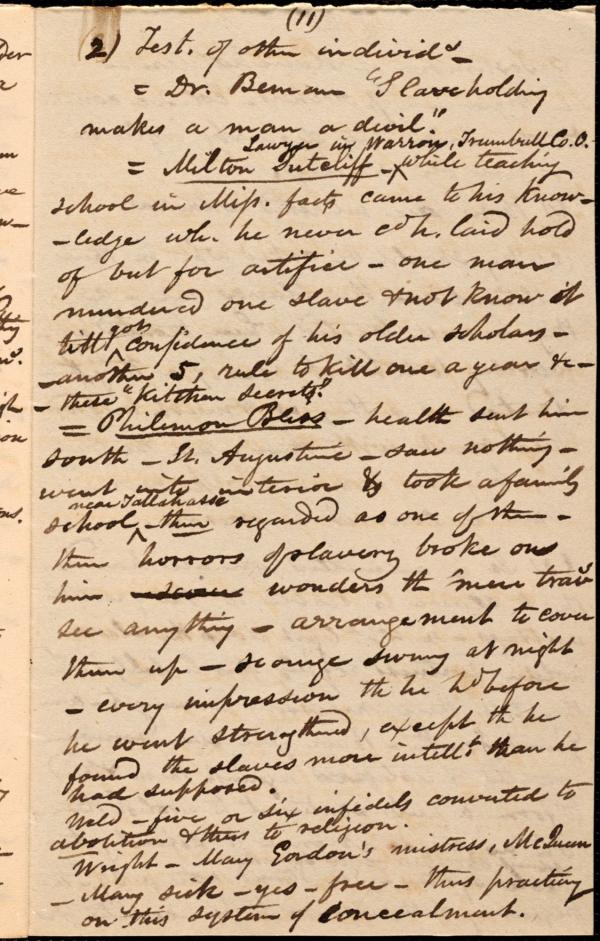 (11)
2) Test. of other individs –
= Dr. Beman "Slaveholding
makes a man a devil."
Lawyer in Warren, Trumbull Co. O.
= Milton Sutcliff – while teaching
school in Miss. facts came to his know-
-ledge wh. he never cd h. laid hold
of but for artifice – one man
murdered one slave & not know it
till gets confidence of his older scholars –
– another 5, rule to kill one a year &c –
– these "Kitchen Secrets."
= Philemon Bliss – health sent him
south – St. Augustine – saw nothing –
went into interior & took a family
near Tallahasse
school – then regarded as one of them –
then horrors of slavery broke on
him wonders th mere travs
see anything – arrangement to cover
them up – scourge swung at night
– every impression th he hd before
he went strengthened, except th he
found the slaves more intellt than he
had supposed.
Weld – five or six infidels converted to
abolition & thus to religion.
Wright – Mary Gordon's mistress,
– Mary sick – yes – free – thus practicing
on this system of concealment.